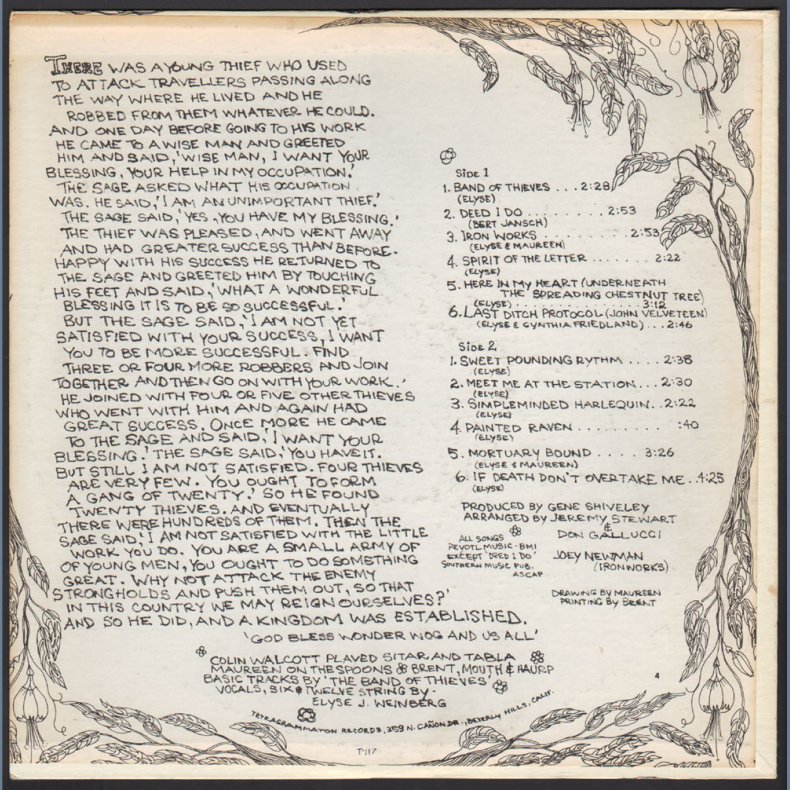 THERE WAS A YOUNG THIEF WHO USED
TO ATTACK TRAVELLERS PASSING ALONG
THE WAY WHERE HE LIVED AND HE
ROBBED FROM THEM WHATEVER HE COULD.
AND ONE DAY BEFORE GOING TO HIS WORK
HE CAME TO A WISE MAN AND GREETED
HIM AND SAID, 'WISE MAN, I WANT YOUR
BLESSING, YOUR HELP IN MY OCCUPATION.'
THE SAGE ASKED WHAT HIS OCCUPATION
WAS. HE SAID, 'I AM AN UNIMPORTANT THIEF.'
THE SAGE SAID, 'YES, YOU HAVE MY BLESSING.'
THE THIEF WAS PLEASED, AND WENT AWAY
AND HAD GREATER SUCCESS THAN BEFORE.
HAPPY WITH HIS SUCCESS HE RETURNED TO
THE SAGE AND GREETED HIM BY TOUCHING
HIS FEET AND SAID, 'WHAT A WONDERFUL
BLESSING IT IS TO BE SO SUCCESSFUL.'
BUT THE SAGE SAID, 'I AM NOT YET
SATISFIED WITH YOUR SUCCESS, I WANT
YOU TO BE MORE SUCCESSFUL. FIND
THREE OR FOUR MORE ROBBERS AND JOIN
TOGETHER AND THEN GO ON WITH YOUR WORK.'
HE JOINED WITH FOUR OR FIVE OTHER THIEVES
WHO WENT WITH HIM AND AGAIN HAD
GREAT SUCCESS. ONCE MORE HE CAME
TO THE SAGE AND SAID, 'I WANT YOUR
BLESSING.' THE SAGE SAID, 'YOU HAVE IT.
BUT STILL I AM NOT SATISFIED. FOUR THIEVES
ARE VERY FEW. YOU OUGHT TO FORM
A GANG OF TWENTY.' SO HE FOUND
TWENTY THIEVES. AND EVENTUALLY
THERE WERE HUNDREDS OF THEM. THEN THE
SAGE SAID, 'I AM NOT SATISFIED WITH THE LITTLE
WORK YOU DO. YOU ARE A SMALL ARMY OF
OF YOUNG MEN, YOU OUGHT TO DO SOMETHING
GREAT. WHY NOT ATTACK THE ENEMY
STRONGHOLDS AND PUSH THEM OUT, SO THAT
IN THIS COUNTRY WE MAY REIGN OURSELVES?'
AND SO HE DID, AND A KINGDOM WAS ESTABLISHED.
'GOD BLESS WONDER WOG AND US ALL'
COLIN WALCOTT PLAYED SITAR AND TABLA
MAUREEN ON THE SPOONS & BRENT, MOUTH & HAURP
BASIC TRACKS BY 'THE BAND OF THIEVES'
VOCALS, SIX & TWELVE STRING BY -
ELYSE J. WEINBERG
TETRAGRAMMATON RECORDS, 359 N. CAÑON DR., BEVERLY HILLS, CALIF.
T-117
SIDE 1
1. BAND OF THIEVES . . . 2:28
(ELYSE)
2. DEED I DO . . . . . . . . 2:53
(BERT JANSCH)
3. IRON WORKS . . . . . . . . 2:53
(ELYSE & MAUREEN)
4. SPIRIT OF THE LETTER . . . . . . 2:22
(ELYSE)
5. HERE IN MY HEART (UNDERNEATH
THE SPREADING CHESTNUT TREE)
(ELYSE) . . . . . . . . 3:12
6. LAST DITCH PROTOCOL (JOHN VELVETEEN)
(ELYSE & CYNTHIA FRIEDLAND) . . . 2:46
SIDE 2
1. SWEET POUNDING RYTHM . . . . 2:38
(ELYSE)
2. MEET ME AT THE STATION . . . . 2:30
(ELYSE)
3. SIMPLEMINDED HARLEQUIN . . 2:22
(ELYSE)
4. PAINTED RAVEN . . . . . . . :40
(ELYSE)
5. MORTUARY BOUND . . . . 3:26
(ELYSE & MAUREEN)
6. IF DEATH DON'T OVERTAKE ME . . 4:25
(ELYSE)
PRODUCED BY GENE SHIVELEY
ARRANGED BY JEREMY STEWART
&
DON GALLUCCI
JOEY NEWMAN
(IRONWORKS)
ALL SONGS
PEYOTL MUSIC - BMI
EXCEPT 'DEED I DO'
SOUTHERN MUSIC PUB.
ASCAP
DRAWING BY MAUREEN
PRINTING BY BRENT
4